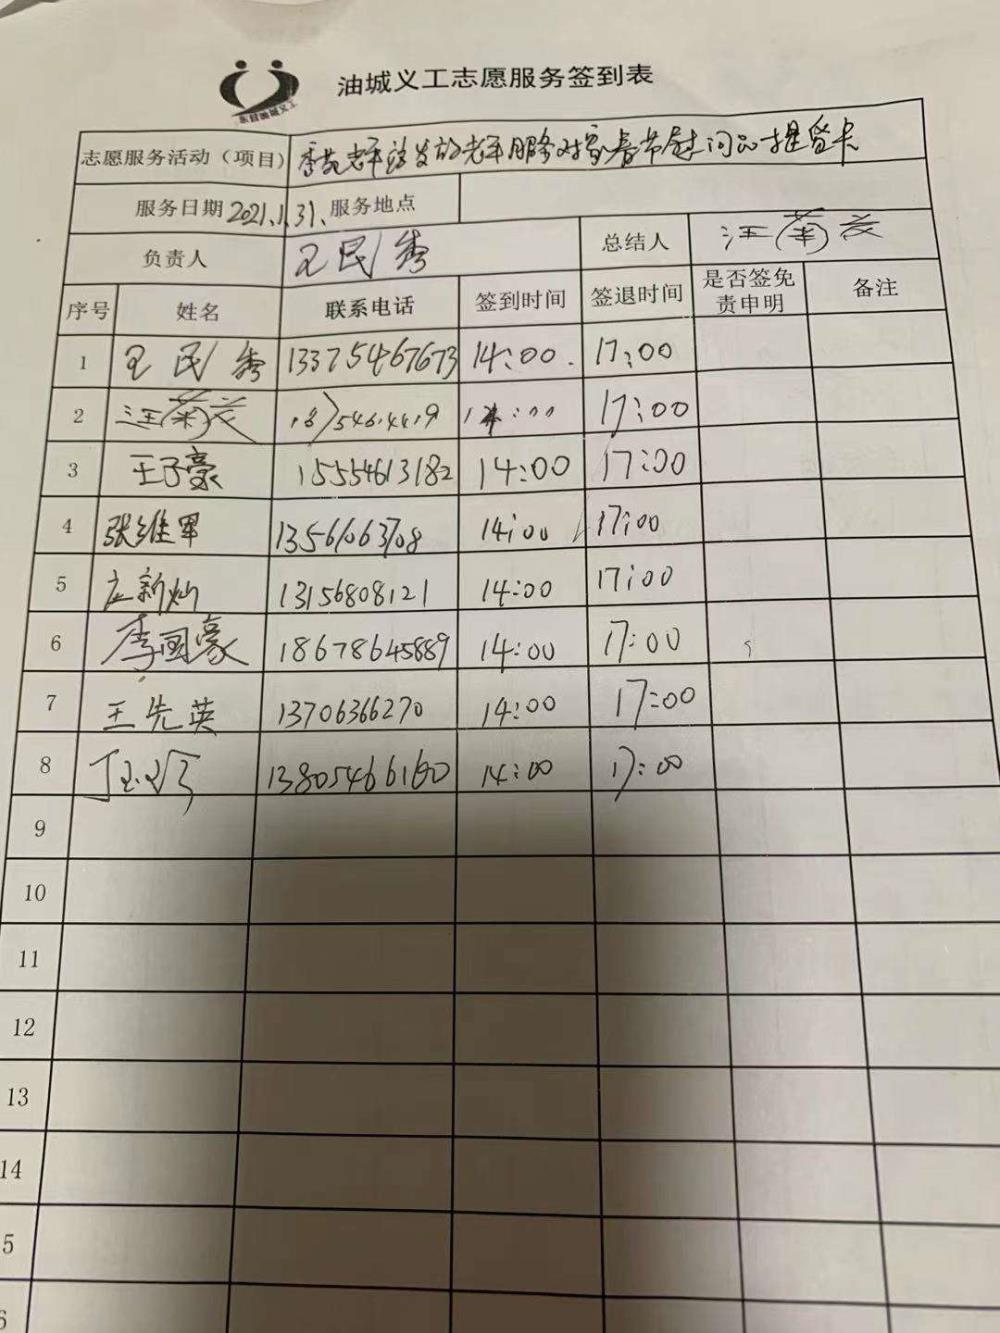 油城义工志愿服务签到表
东营油城义工
志愿服务活动（项目） 老年 发放老年服务对象春节慰问品提货卡
服务日期 2021.1.31. 服务地点
负责人 王民秀 总结人 汪菊
序号 姓名 联系电话 签到时间 签退时间 是否签免责申明 备注
1 王民秀 13375467673 14:00. 17:00
2 汪菊 17:00
3 王子豪 15554613182 14:00 17:00
4 张维军 13561063708 14:00 17:00
5 庄新灿 13156808121 14:00 17:00
6 李国豪 18678645889 14:00 17:00
7 王先英 13706366270 14:00 17:00
8 13805466160 14:00 17:00
9
10
11
12
13
14
5
6